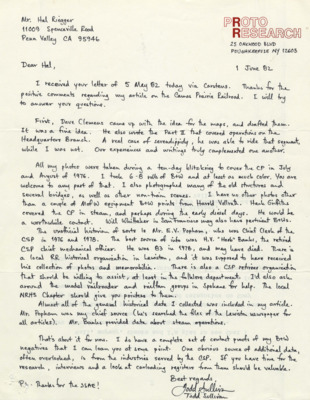 Mr. Hal Riegger
11009 Spenceville Road
Penn Valley CA 95946
PROTO
RESEARCH
25 OAKWOOD BLVD
POUGHKEEPSIE NY 12603
1 June 82
Dear Hal,
I received your letter of 5 May 82 today via Carstens. Thanks for the
positive comments regarding my article on the Camas Prairie Railroad. I will try
to answer your questions.
First, Dave Clemens came up with the idea for the maps, and drafted them.
It was a fine idea. He also wrote the Part II that covered operations on the
Headquarters Branch. A real case of serendipity, he was able to ride that segment,
while I was not. Our experiences and writings truly complemented one another.
All my photos were taken during a ten day blitzkrieg to cover the CP in July
and August of 1976. I took 6-8 rolls of B&W and at least as much color. You are
welcome to any part of that. I also photographed many of the old structures and
several bridges, as well as other non-train scenes. I have no other photos other
than a couple of equipment B&W prints from Harold Vollrath. Hank Griffiths
covered the CP in steam, and perhaps during the early diesel days. He would be
a worthwhile contact. Will Whittaker in San Francisco may also have pertinent B&Ws.
The unofficial historian of sorts is Mr. R.V. Popham, who was Chief Clerk of the
CSP in 1976 and 1978. The best source of info was H.V. "Herb" Bombs, the retired
CSP chief mechanical officer. He was 83 in 1978, and may have died. There is
a local RR historical organization in Lewiston, and it was supposed to have received
his collection of photos and memorabilia. There is also a CSP retirees organization
that should be willing to assist, at least in the folklore department. I'd also ask
around the model railroader and railfan groups in Spokane for help. The local
NRHS Chapter should give you pointers to them.
Almost all of the general historical data I collected was included in my article.
Mr. Popham was my chief source (he's searched the files of the Lewiston newspaper for
all articles). Mr. Bombs provided data about steam operations.
That's about it for now. I do have a complete set of contact proofs of my B&W
negatives that I can loan you at some point. One obvious source of additional data,
often overlooked, is from the industries served by the CSP. If you have time for the
research, interviews and a look at corroborating registers from them should be valuable.
Best regards,
Todd Sullivan
Todd Sullivan
P.S. Thanks for the SSAE!